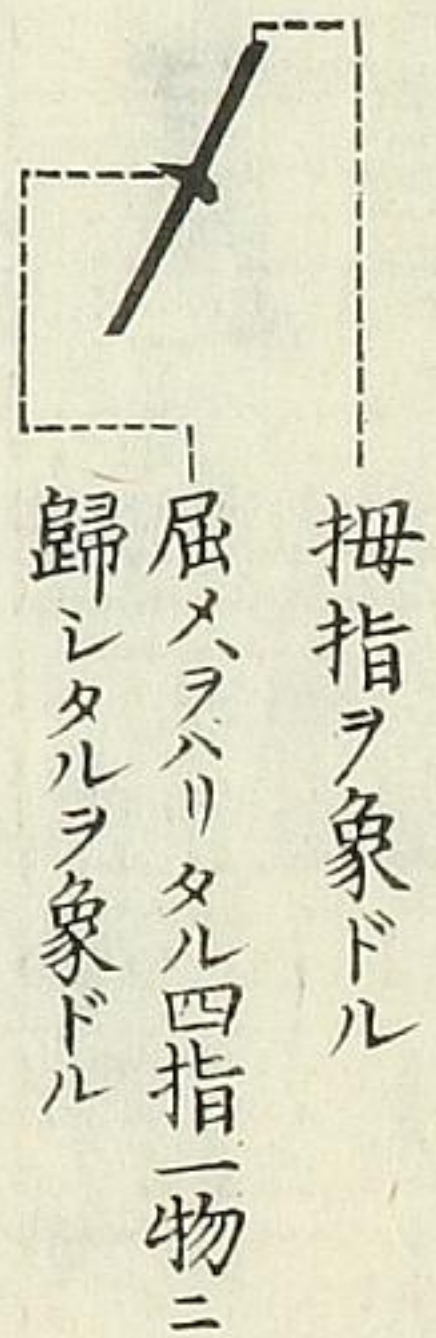 拇指ヲ象ドル
屈メ、ヲハリタル四指一物ニ
歸シタルヲ象ドル